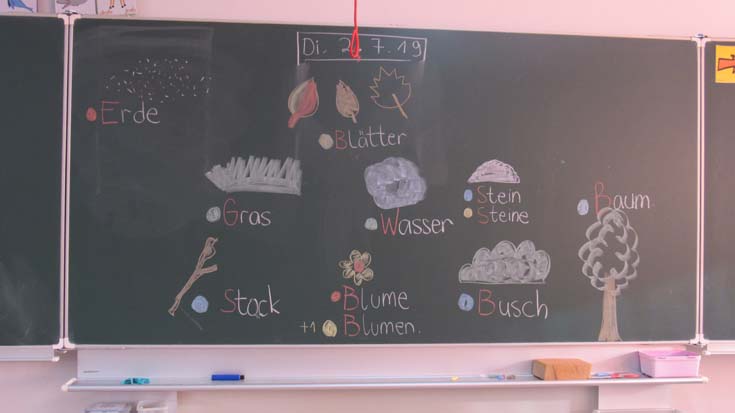 Di. 2 . 7 . 19
Erde
Blätter
Gras
Wasser
Stein
Steine
Baum
Stock
Blume
+1 Blumen.
Busch